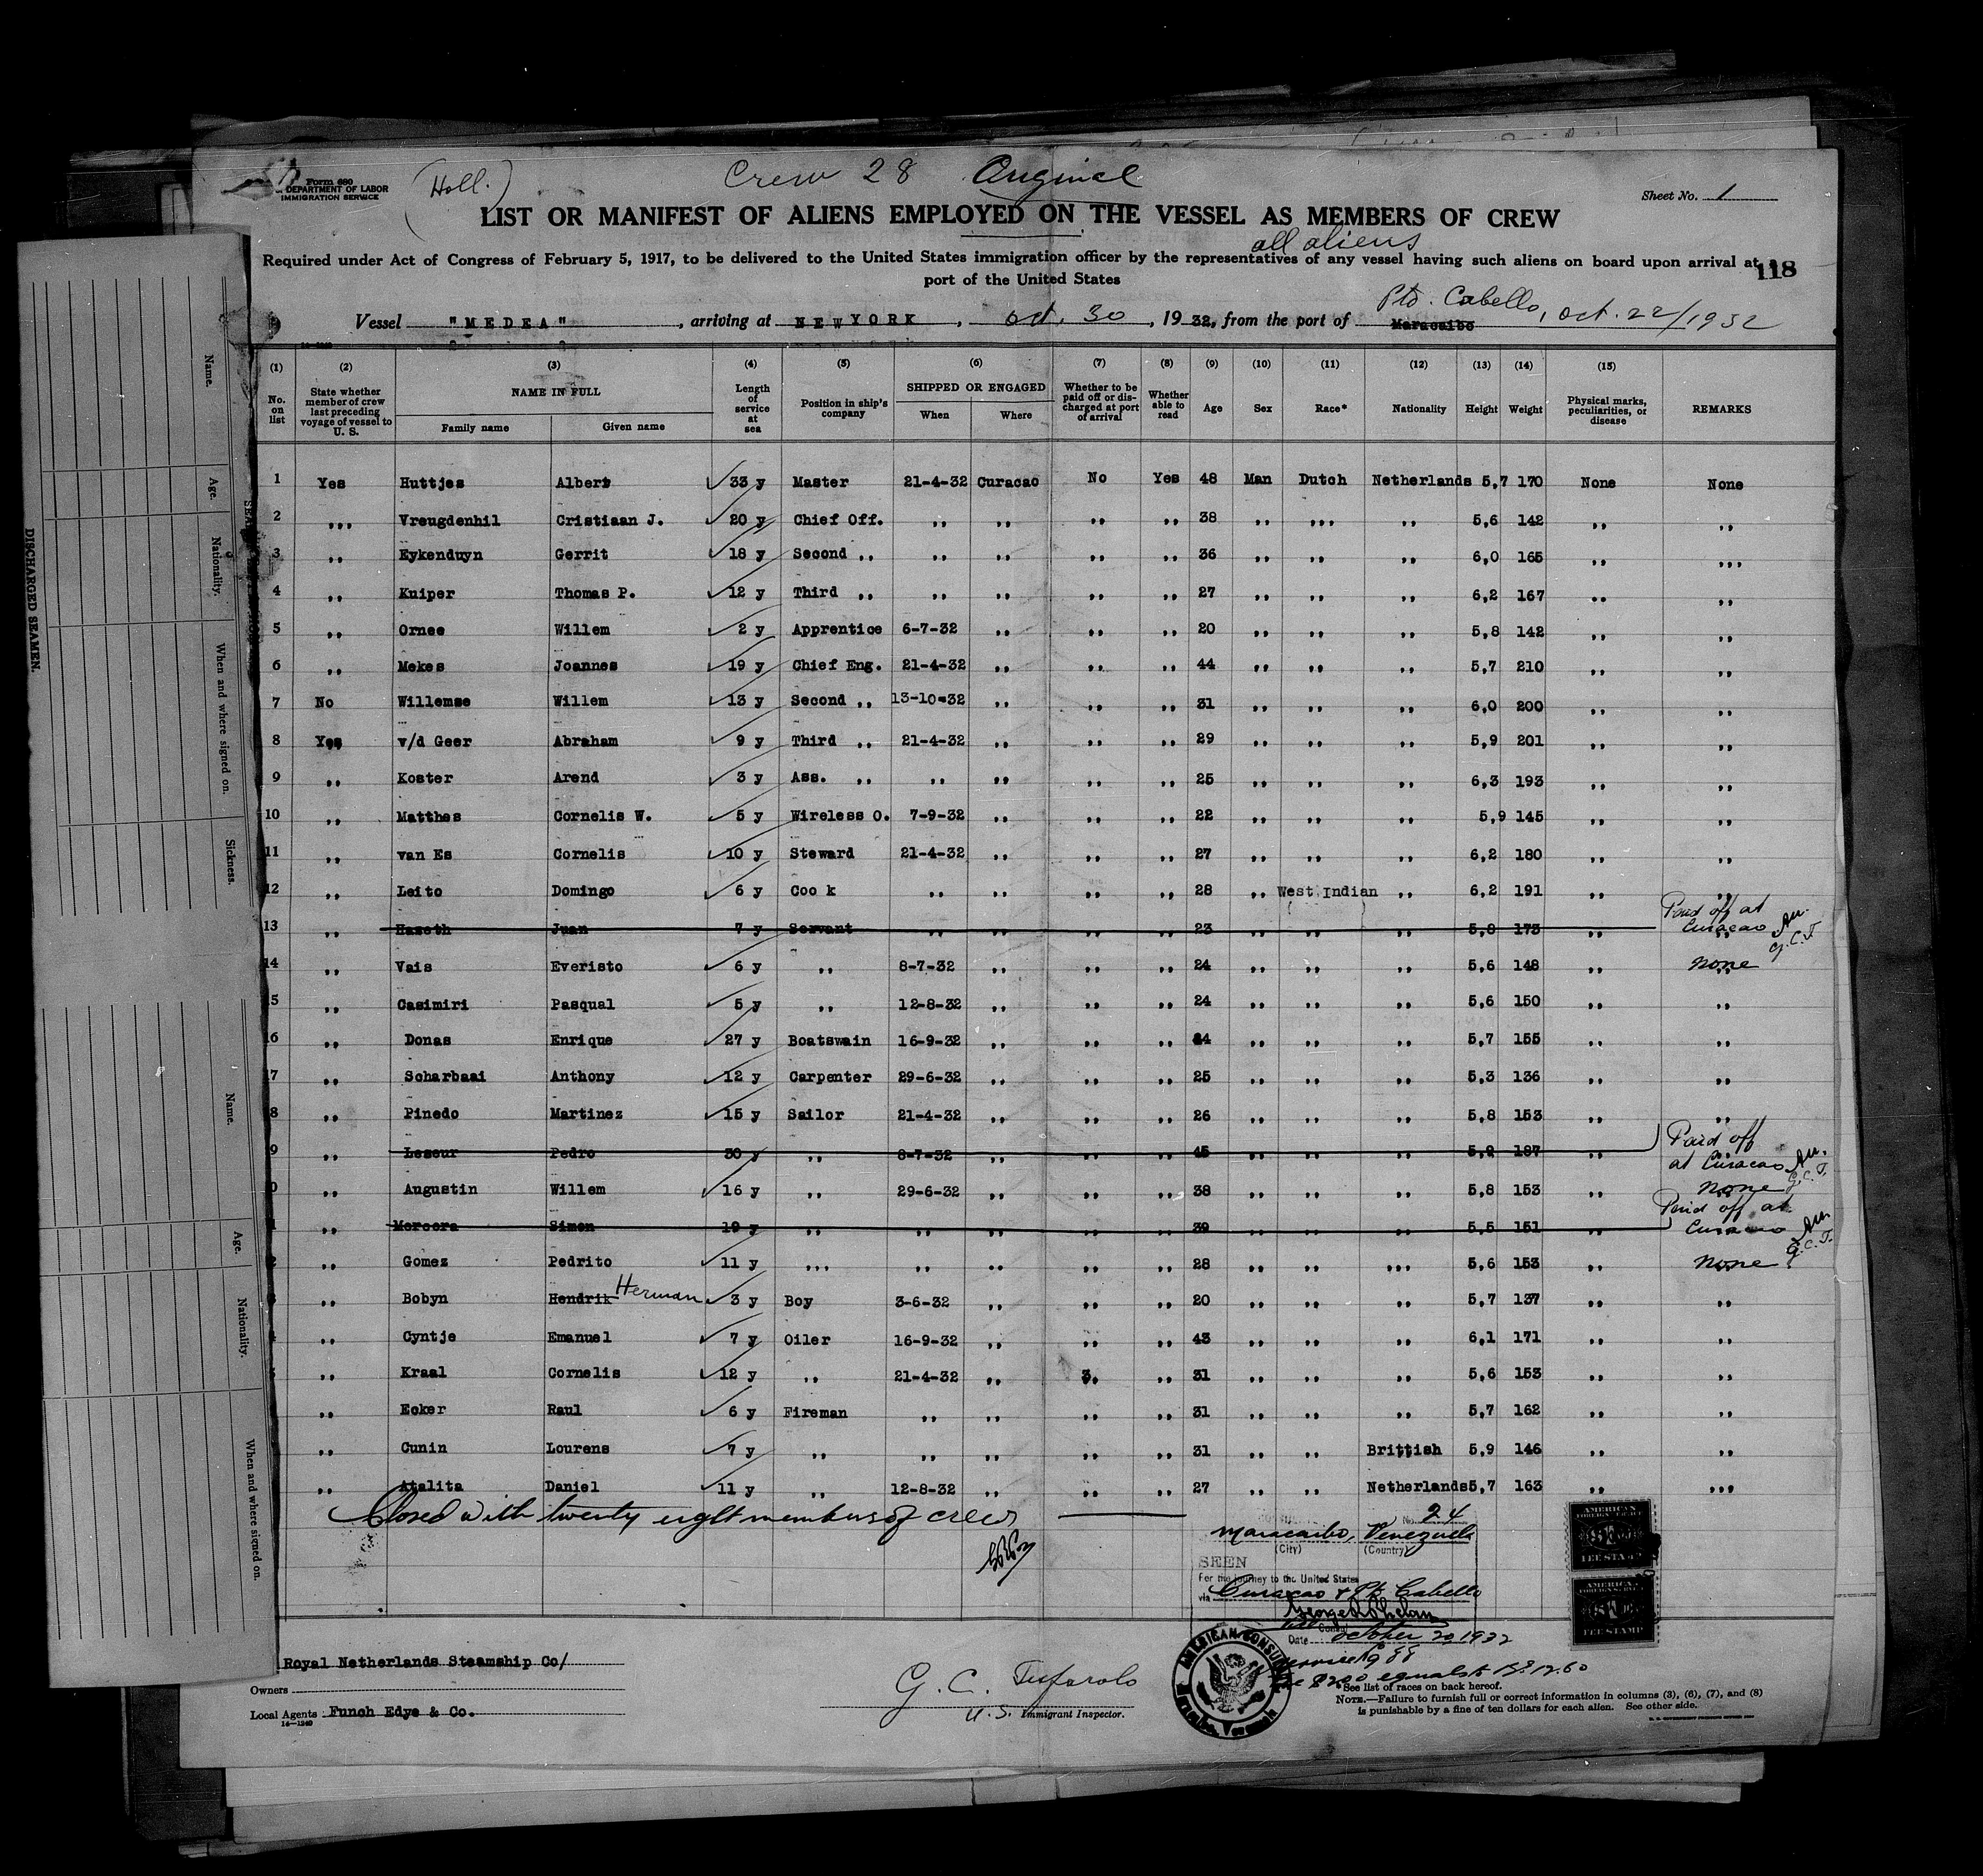 Form 680
DEPARTMENT OF LABOR
IMMIGRATION SERVICE
(Holl.)
Crew 28 Original
Sheet No. 1
LIST OR MANIFEST OF ALIENS EMPLOYED ON THE VESSEL AS MEMBERS OF CREW
all aliens
Required under Act of Congress of February 5, 1917, to be delivered to the United States immigration officer by the representatives of any vessel having such aliens on board upon arrival at a
port of the United States
118
Vessel "MEDEA", arriving at NEW YORK, Oct. 30, 1932, from the port of Maracaibo Pto. Cabello, Oct. 22/1932
(1) (2) (3) (4) (5) (6) (7) (8) (9) (10) (11) (12) (13) (14) (15)
No. on list State whether member of crew last preceding voyage of vessel to U. S. NAME IN FULL Family name Given name Length of service at sea Position in ship's company SHIPPED OR ENGAGED When Where Whether to be paid off or discharged at port of arrival Whether able to read Age Sex Race* Nationality Height Weight Physical marks, peculiarities, or disease REMARKS
1 Yes Huttjes Albert 33 y Master 21-4-32 Curacao No Yes 48 Man Dutch Netherlands 5,7 170 None None
2 ,,, Vreugdenhil Cristiaan J. 20 y Chief Off. ,, ,, ,, ,, 38 ,, ,,, ,, 5,6 142 ,, ,,
3 ,, Eykenduyn Gerrit 18 y Second ,, ,, ,, ,, ,, 36 ,, ,, ,, 6,0 165 ,, ,,,
4 ,, Kniper Thomas P. 12 y Third ,, ,, ,, ,, ,, 27 ,, ,, ,, 6,2 167 ,, ,,
5 ,, Ornee Willem 2 y Apprentice 6-7-32 ,, ,, ,, 20 ,, ,, ,, 5,8 142 ,, ,,
6 ,, Mekes Joannes 19 y Chief Eng. 21-4-32 ,, ,, ,, 44 ,, ,, ,, 5,7 210 ,, ,,
7 No Willemse Willem 13 y Second ,, 13-10-32 ,, ,, ,, 31 ,, ,, ,, 6,0 200 ,, ,,
8 Yes v/d Geer Abraham 9 y Third ,, 21-4-32 ,, ,, ,, 29 ,, ,, ,, 5,9 201 ,, ,,
9 ,, Koster Arend 3 y Ass. ,, ,, ,, ,, ,, 25 ,, ,, ,, 6,3 193 ,, ,,
10 ,, Matthes Cornelis W. 5 y Wireless O. 7-9-32 ,, ,, ,, 22 ,, ,, ,, 5,9 145 ,, ,,
11 ,, van Es Cornelis 10 y Steward 21-4-32 ,, ,, ,, 27 ,, ,, ,, 6,2 180 ,, ,,
12 ,, Leito Domingo 6 y Coo k ,, ,, ,, ,, 28 ,, West Indian ,, 6,2 191 ,, ,,
13 ,, Haseth Juan 7 y Servant ,, ,, ,, ,, 23 ,, ,, ,, 5,8 173 ,, Paid off at Curacao G.C.T.
14 ,, Vais Everisto 6 y ,, 8-7-32 ,, ,, ,, 24 ,, ,, ,, 5,6 148 ,, None
5 ,, Casimiri Pasqual 5 y ,, 12-8-32 ,, ,, ,, 24 ,, ,, ,, 5,6 150 ,, ,,
6 ,, Donas Enrique 27 y Boatswain 16-9-32 ,, ,, ,, 44 ,, ,, ,, 5,7 155 ,, ,,
7 ,, Scharbaai Anthony 12 y Carpenter 29-6-32 ,, ,, ,, 25 ,, ,, ,, 5,3 136 ,, ,,
8 ,, Pinedo Martinez 15 y Sailor 21-4-32 ,, ,, ,, 26 ,, ,, ,, 5,8 153 ,, ,,
9 ,, Leseur Pedro 30 y ,, 8-7-32 ,, ,, ,, 45 ,, ,, ,, 5,9 187 ,, Paid off at Curacao G.C.T.
0 ,, Augustin Willem 16 y ,, 29-6-32 ,, ,, ,, 38 ,, ,, ,, 5,8 153 ,, None
1 ,, Mercera Simon 19 y ,, ,, ,, ,, ,, 39 ,, ,, ,, 5,5 151 ,, Paid off at Curacao G.C.T.
2 ,, Gomez Pedrito 11 y ,,, ,, ,, ,, ,, 28 ,, ,, ,,, 5,6 153 ,, None
3 ,, Bobyn Hendrik Herman 3 y Boy 3-6-32 ,, ,, ,, 20 ,, ,, ,, 5,7 137 ,, ,,
,, Cyntje Emanuel 7 y Oiler 16-9-32 ,, ,, ,, 43 ,, ,, ,, 6,1 171 ,, ,,
,, Kraal Cornelis 12 y ,, 21-4-32 ,, ,, ,, 31 ,, ,, ,, 5,6 153 ,, ,,
,, Ecker Raul 6 y Fireman ,, ,, ,, ,, 31 ,, ,, ,, 5,7 162 ,, ,,
,, Cunin Lourens 7 y ,, ,, ,, ,, ,, 31 ,, ,, Brittish 5,9 146 ,, ,,
,, Atalita Daniel 11 y ,, 12-8-32 ,, ,, ,, 27 ,, ,, Netherlands 5,7 163 ,, ,,,
Closed with twenty eight members of crew
No. 24
Maracaibo, Venezuela
(City) (Country)
SEEN
For the journey to the United States
via Curacao & Pto Cabello
George R Phelan
Vice Consul
Date October 20, 1932
Service No 99
Fee $2.00 equals Bs. 12.60
AMERICAN FOREIGN SERVICE FEE STAMP
AMERICAN FOREIGN SERVICE FEE STAMP
AMERICAN CONSULATE
Royal Netherlands Steamship Co/
Owners
Local Agents Funch Edye & Co.
14-1240
G. C. Tufarolo
U.S. Immigrant Inspector.
*See list of races on back hereof.
NOTE.—Failure to furnish full or correct information in columns (3), (6), (7), and (8)
is punishable by a fine of ten dollars for each alien. See other side.
DISCHARGED SEAMEN.
Name.
Age.
Nationality.
When and where signed on.
Sickness.
Name.
Age.
Nationality.
When and where signed on.